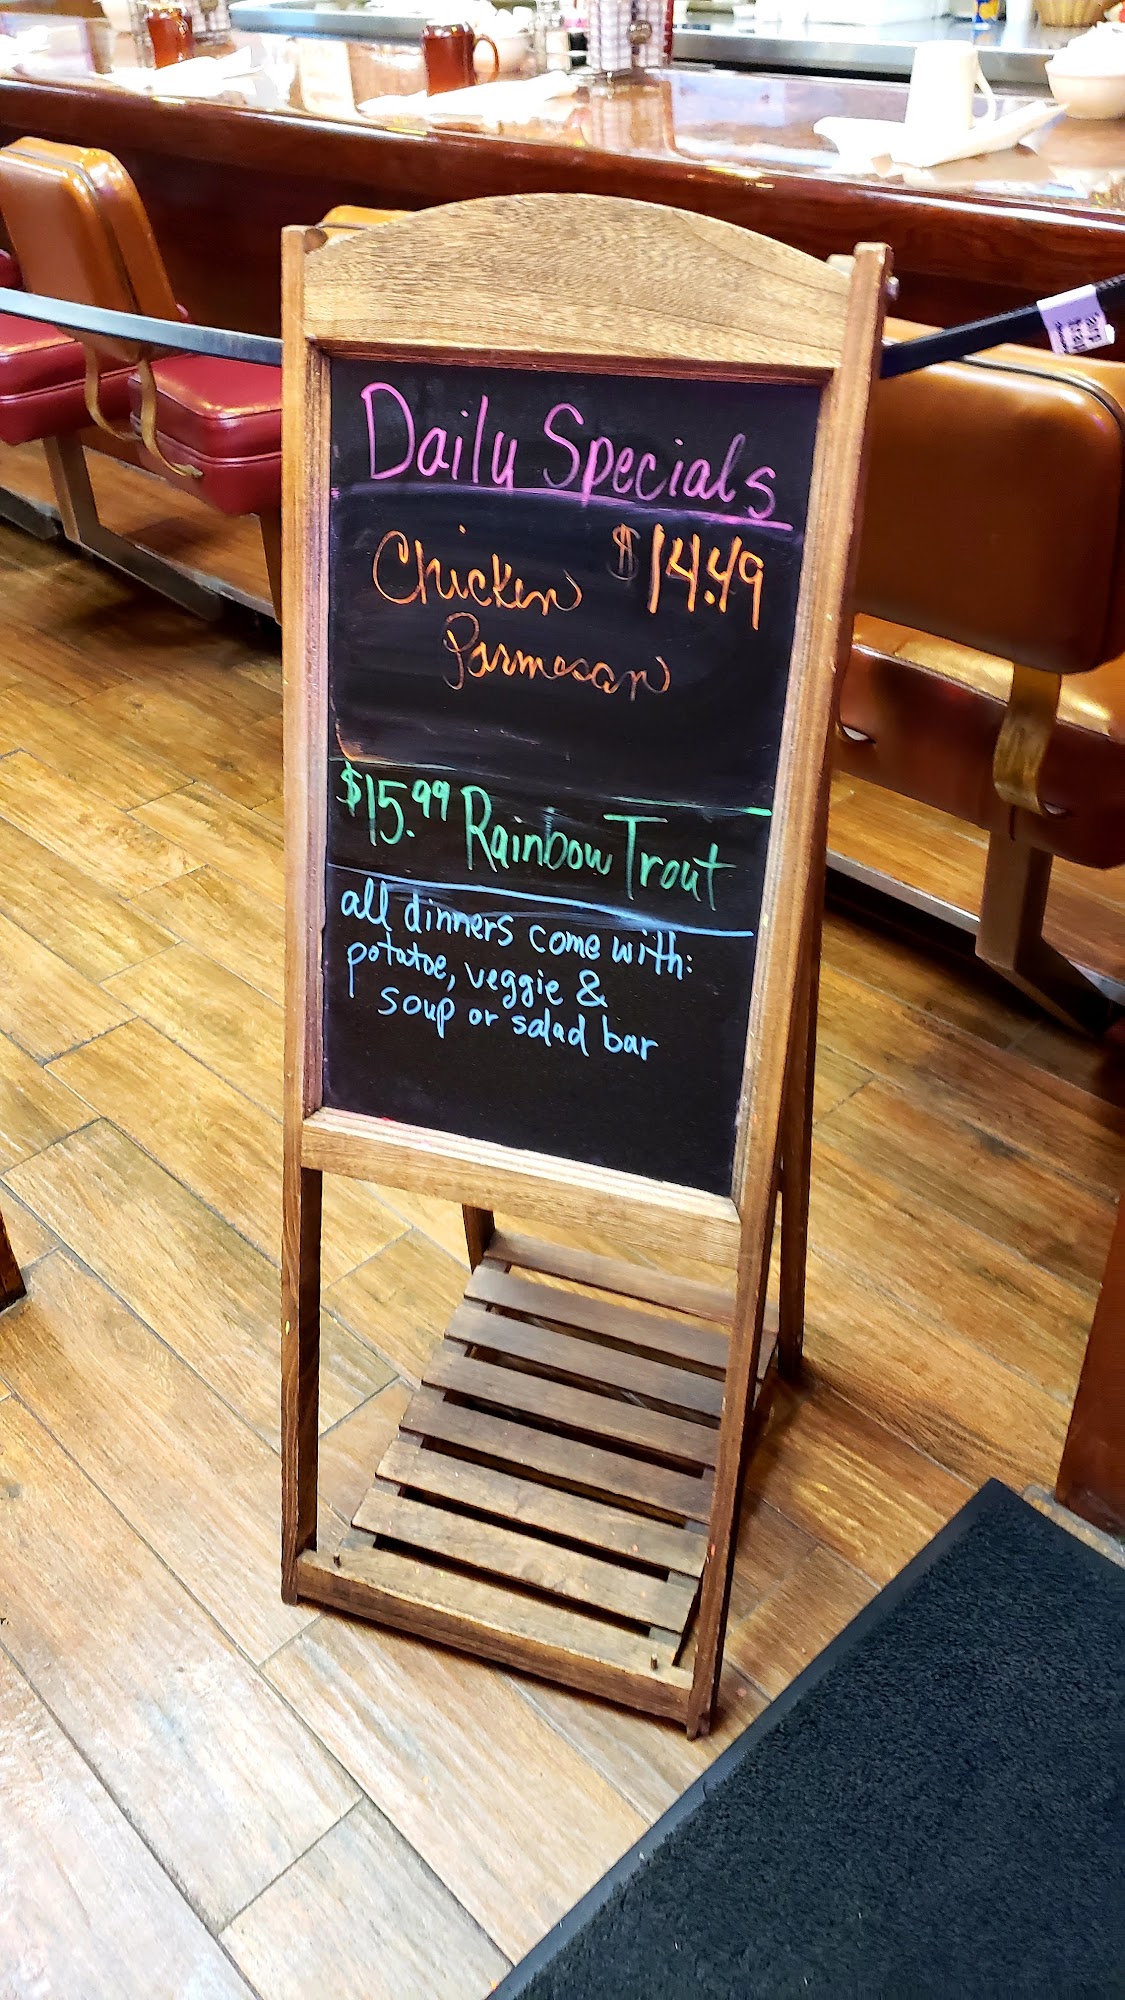 Daily Specials
Chicken $14.49
Parmesan
$15.99 Rainbow Trout
all dinners come with:
potatoe, veggie &
soup or salad bar